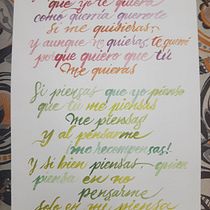 que yo te quiera
como querría quererte
si me quisieras;
y aunque no quieras te querré
porque quiero que tú
me quieras
Si piensas que yo pienso
que tu me piensas
me piensas!
Y al pensarme
me recompensas!
Y si bien piensas quien
piensa en no
pensarme
solo en mi piensa